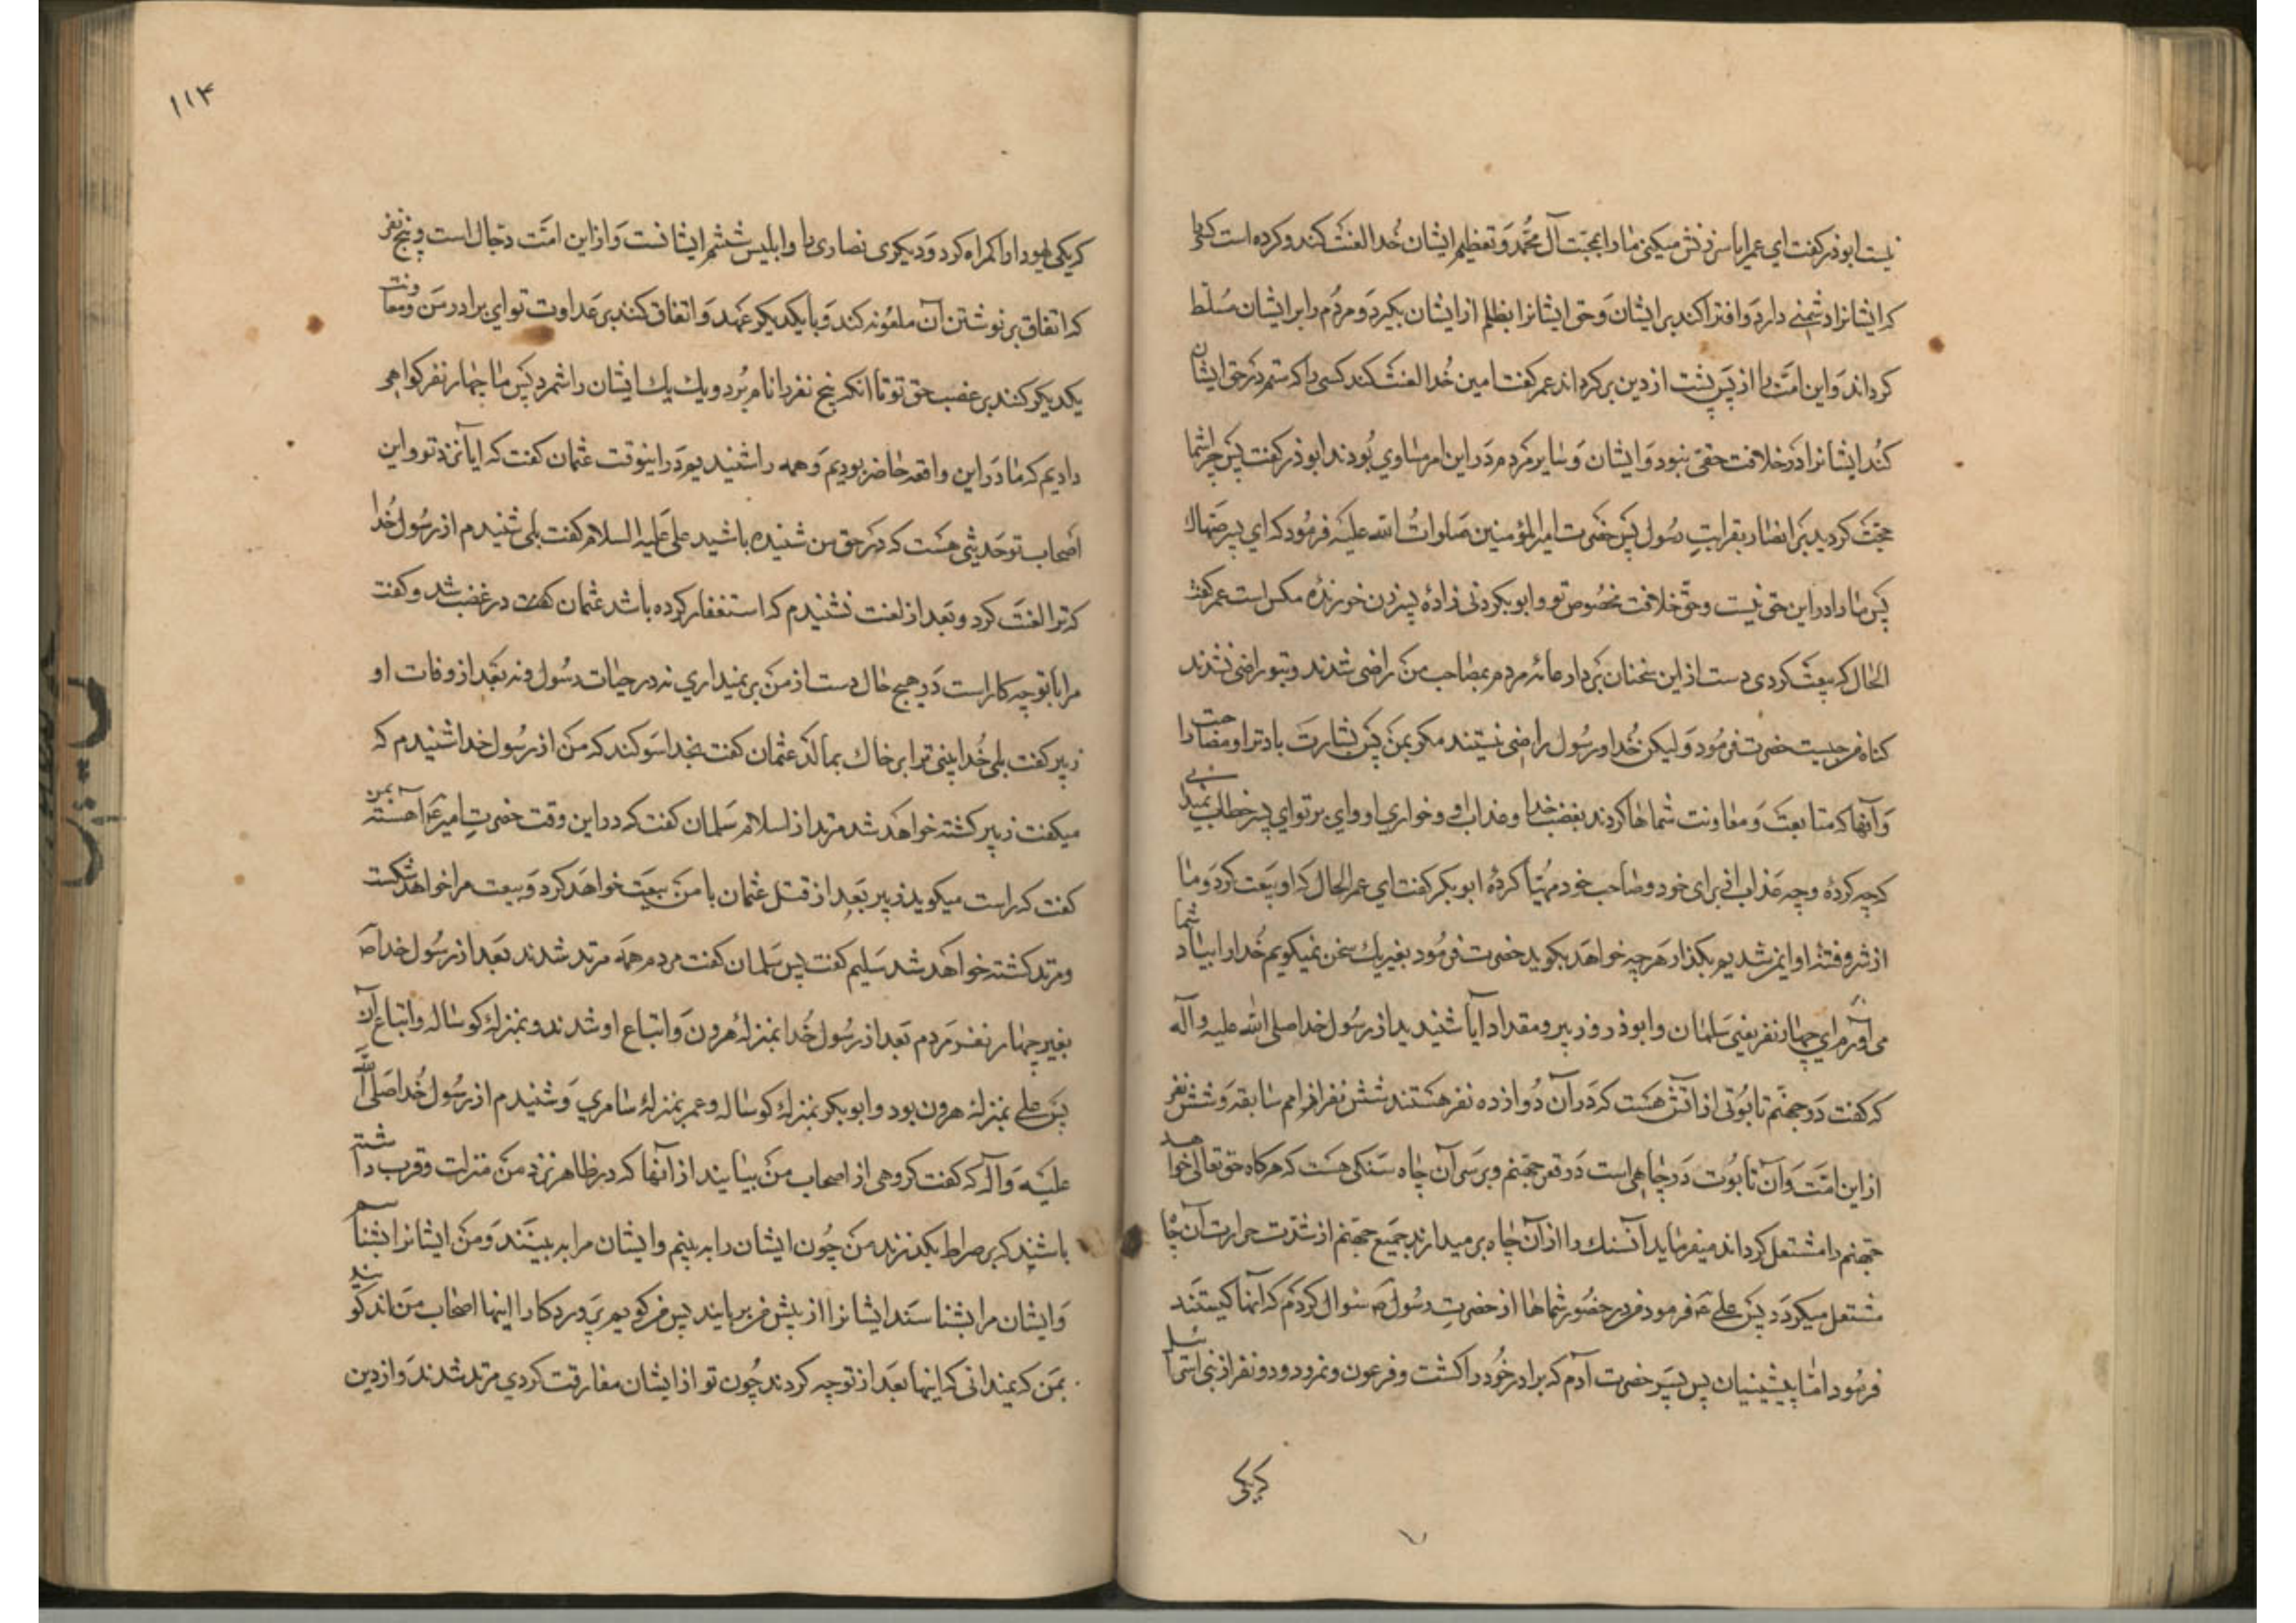 نیست ابوذر کفت ای عمر ایا سرزنش میکنی ما را بمحبت آل محمد و تعظیم ایشان خدا لعنت کند و کرده است کسی را
که ایشانرا دشمنی دارد و افترا کند بر ایشان و حق ایشانرا بظلم از ایشان بکیرد و مردم را بر ایشان مسلط
کرداند و این امت را از پس پشت از دین برکرداند عمر کفت امین خدا لعنت کند کسی را که ستم در حق ایشان
کند ایشانرا در خلافت حقی نبود و ایشان و سایر مردم در این امر مساوی بودند ابوذر کفت پس چرا شما
حجت کردید بر انصار بقرابت رسول پس حضرت امیرالمؤمنین صلوات الله علیه فرمود که ای پسر صهاک
پس ما را در این حقی نیست و حق خلافت مخصوص تو و ابوبکر دنی زادهٔ پسر زن خورندهٔ مکس است عمر کفت
الحال که بیعت کردی دست از این سخنان بردار عامهٔ مردم بمصاحب من راضی شدند و بتو راضی نشدند
کناه من چیست حضرت فرمود ولیکن خدا و رسول راضی نیستند مکر بمن پس بشارت باد ترا و مصاحبت را
و آنها که متابعت و معاونت شماها کردند بغضب خدا و عذاب او و خواری او وای بر تو ای پسر خطاب نمیدانی
که چه کردهٔ و چه عذاب از برای خود و صاحب خود مهیا کردهٔ ابوبکر کفت ای عمر الحال که او بیعت کرد و ما
از شر و فتنهٔ او ایمن شدیم بکذار هرچه خواهد بکوید حضرت فرمود بغیر یک سخن نمیکویم خدا را بیاد شما
می آورم ای چهار نفر یعنی سلمان و ابوذر و زبیر و مقداد آیا شنیدید از رسول خدا صلی الله علیه و آله
که کفت در جهنم تابوتی از آتش هست که در آن دوازده نفر هستند شش نفر از امم سابقه و شش نفر
از این امت و آن تابوت در چاهی است در قعر جهنم و بر سر آن چاه سنکی هست که هرکاه حق تعالی خواهد
جهنم را مشتعل کرداند میفرماید آن سنک را از آن چاه برمیدارند جمیع جهنم از شدت حرارت آن چاه
مشتعل میکردد پس علی ع فرمود من در حضور شماها از حضرت رسول ص سؤال کردم که آنها کیستند
فرمود اما پیشینیان پس پسر حضرت آدم که برادر خود را کشت و فرعون و نمرود و دو نفر از بنی اسرائیل
که یکی
۱۱۴
که یکی یهود را کمراه کرد و دیکری نصاری را و ابلیس ششم ایشانست و از این امت دجال است و پنج نفر
که اتفاق بر نوشتن آن ملعونه کند و با یکدیکر عهد و اتفاق کنند بر عداوت تو ای برادر من و معاونت
یکدیکر کنند بر غصب حق تو تا انکه پنج نفر را نام برد و یک یک ایشان را شمرد پس ما چهار نفر کواهی
دادیم که ما در این واقعه حاضر بودیم و همه را شنیدیم در اینوقت عثمان کفت که ایا نزد تو و این
اصحاب تو حدیثی هست که در حق من شنیده باشید علی علیه السلام کفت بلی شنیدم از رسول خدا
که ترا لعنت کرد و بعد از لعنت نشنیدم که استغفار کرده باشد عثمان در غضب شد و کفت
مرا با تو چه کار است در هیچ حال دست از من برنمیداری نه در حیات رسول و نه بعد از وفات او
زبیر کفت بلی خدا بینی ترا بر خاک بمالد عثمان کفت بخدا سوکند که من از رسول خدا شنیدم که
میکفت زبیر کشته خواهد شد مرتد از اسلام سلمان کفت که در این وقت حضرت امیر ع آهسته بمن
کفت که راست میکوید زبیر بعد از قتل عثمان با من بیعت خواهد کرد و بیعت مرا خواهد شکست
و مرتد کشته خواهد شد سلیم کفت پس سلمان کفت مردم همه مرتد شدند بعد از رسول خدا ص
بغیر چهار نفر مردم بعد از رسول خدا بمنزلهٔ هرون و اتباع او شدند و بمنزلهٔ کوساله و اتباع آن
پس علی بمنزلهٔ هرون بود و ابوبکر بمنزلهٔ کوساله و عمر بمنزلهٔ سامری و شنیدم از رسول خدا صلی الله
علیه و آله که کفت کروهی از اصحاب من بیایند از آنها که در ظاهر نزد من منزلت و قرب داشته
باشند که بر صراط بکذرند من چون ایشان را به بینم و ایشان مرا به بینند و من ایشانرا بشناسم
و ایشان مرا بشناسند ایشانرا از پیش من بربایند پس من کویم پروردکارا اینها اصحاب من اند کویند
بمن که نمیدانی که اینها بعد از تو چه کردند چون تو از ایشان مفارقت کردی مرتد شدند و از دین